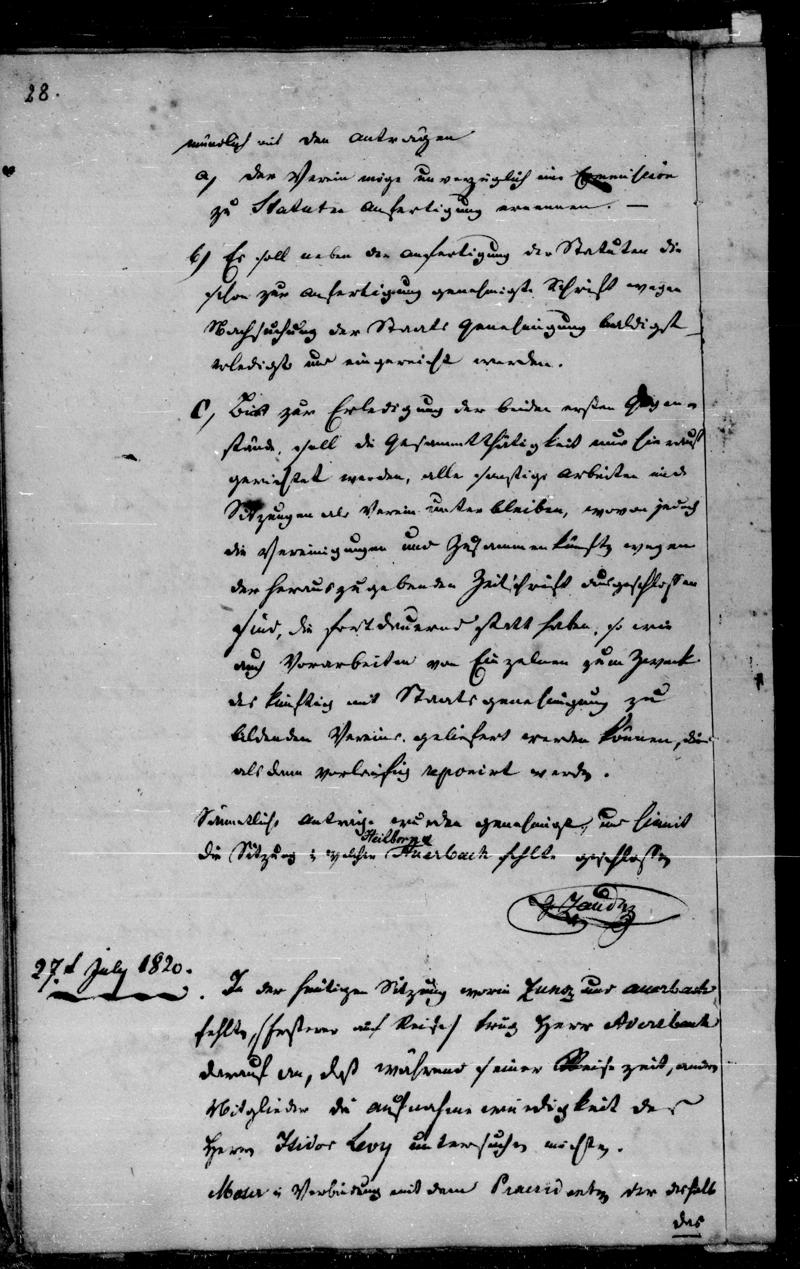 28.
mündlich mit den Anträgen
a, der Verein möge unverzüglich eine Commission
zu Statuten Anfertigung ernennen. —
b, Es soll neben der Anfertigung der Statuten die
schon zur Anfertigung genehmigte Schrift wegen
Nachsuchung der Staats Genehmigung baldigst
erledigt und eingereicht werden.
C, Bis zur Erledigung der beiden ersten Gegen-
stände, soll die Gesammtthätigkeit nur hierauf
gerichtet werden, alle sonstige Arbeiten und
Sitzungen als Verein unterbleiben, wovon jedoch
die Vereinigungen und Zusammenkünfte wegen
der herauszugebenden Zeitschrift ausgeschlossen
sind, die fortdauernd statt haben, so wie
auch Vorarbeiten von Einzelnen zum Zweck
des künftig mit Staatsgenehmigung zu
bildenden Vereins geliefert werden können, die
alsdann vorläufig reponirt werden.
Sämmtliche Anträge wurden genehmigt, und hiemit
Heilbronn &
die Sitzung in welcher Auerbach fehlte geschlossen
27.t July 1820.
In der heutigen Sitzung worin Zunz und Auerbach
fehlte, (ersterer auf Reise) trug Herr
darauf an, daß während seiner Reise zeit, andre
Mitglieder die Aufnahmewürdigkeit des
Herrn Isidor Levy untersuchen möchten.
Moser in Verbindung mit dem der deshalb
das